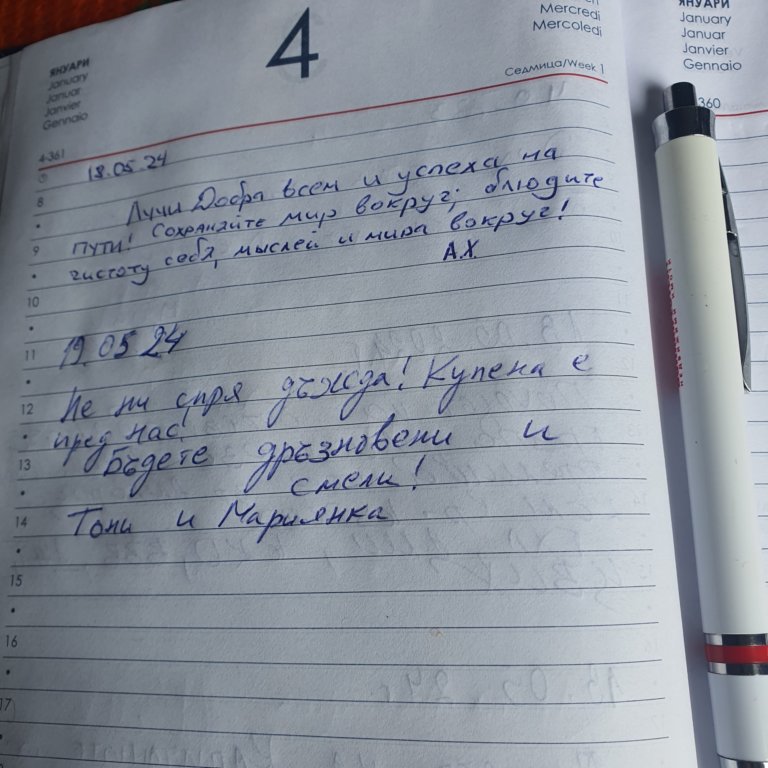 ЯНУАРИ
January
Januar
Janvier
Gennaio
4
Mercredi
Mercoledi
Седмица/Week 1
4-361
ЯНУАРИ
January
Januar
Janvier
Gennaio
360
18.05.24
Лучи Добра всем и успеха на
пути! Сохраняйте мир вокруг; блюдите
чистоту себя, мыслей и мира вокруг!
А.Х.
19.05 24
Не ни спря дъжда! Купена е
пред нас!
Бъдете дръзновени и
смели!
Тони и Мариянка
7
8
9
10
11
12
13
14
15
16
17